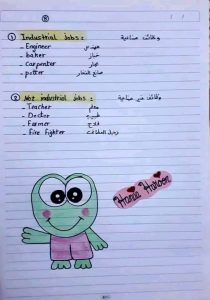 ① Industrial jobs : وظائف صناعية
- Engineer مهندس
- baker خباز
- Carpenter نجار
- potter صانع الفخار
② Not industrial jobs : وظائف غير صناعية
- Teacher معلم
- Doctor طبيب
- Farmer فلاح
- Fire fighter رجل المطافئ